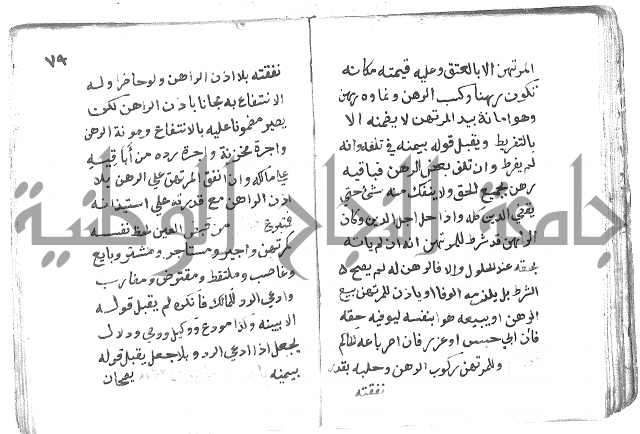 المرتهن الا بالعتق وعليه قيمته مكانه
تكون رهنا وكسب الرهن ونماوه رهن
وهو امانة بيد المرتهن لا يضمنه الا
بالتفريط ويقبل قوله بيمينه في تلفه وانه
لم يفرط وان تلف بعض الرهن فباقيه
رهن بجميع الحق ولا ينفك منه شئ حتي
يقضي الدين كله واذا حل اجل الدين وكان
الراهن قد شرط للمرتهن انه ان لم ياته
بحقه عند الحلول والا فالرهن له لم يصح
الشرط بل يلزمه الوفا او ياذن للمرتهن ببيع
الرهن او يبيعه هو بنفسه ليوفيه حقه
فان ابي حبس او عزر فان اصر باعه الحاكم
وللمرتهن ركوب الرهن وحلبه بقدر
نفقته
٧٩
نفقته بلا اذن الراهن ولو حاضرا وله
الانتفاع به مجانا باذن الراهن لكن
يصير مضمونا عليه بالانتفاع ومونة الرهن
واجرة مخزنه واجرة رده من اباقه
علي مالكه وان انفق المرتهن علي الرهن بلا
اذن الراهن مع قدرته علي استيذانه
فمتبرع من قبض العين لحظ نفسه
كمرتهن واجير ومستاجر ومشتر وبايع
وغاصب وملتقط ومقترض ومضارب
وادعي الرد للمالك فانكره لم يقبل قوله
الا ببينة وكذا مودع ووكيل ووصي ودلال
بجعل اذا ادعي الرد وبلا جعل يقبل قوله
بيمينه
يصحان
جامعة النجاح الوطنية